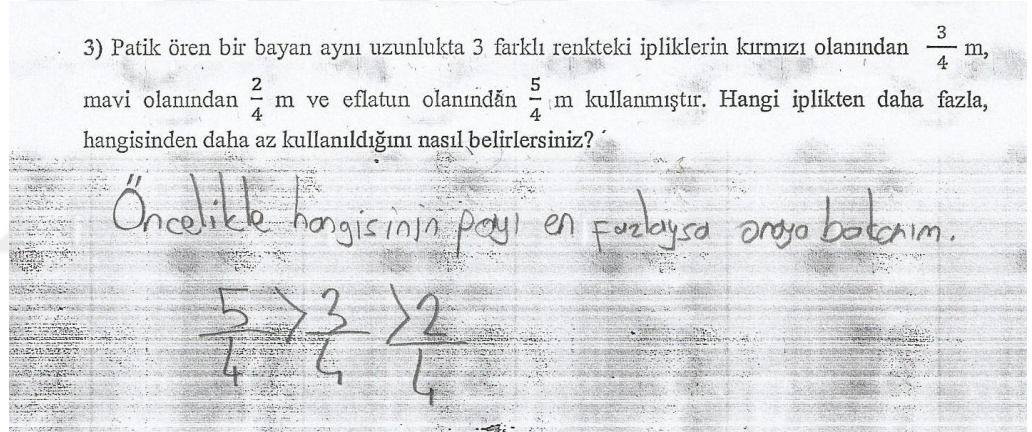 3) Patik ören bir bayan aynı uzunlukta 3 farklı renkteki ipliklerin kırmızı olanından 3/4 m,
mavi olanından 2/4 m ve eflatun olanından 5/4 m kullanmıştır. Hangi iplikten daha fazla,
hangisinden daha az kullanıldığını nasıl belirlersiniz?
Öncelikle hangisinin payı en fazlaysa oraya bakarım.
5/4 > 3/4 > 2/4